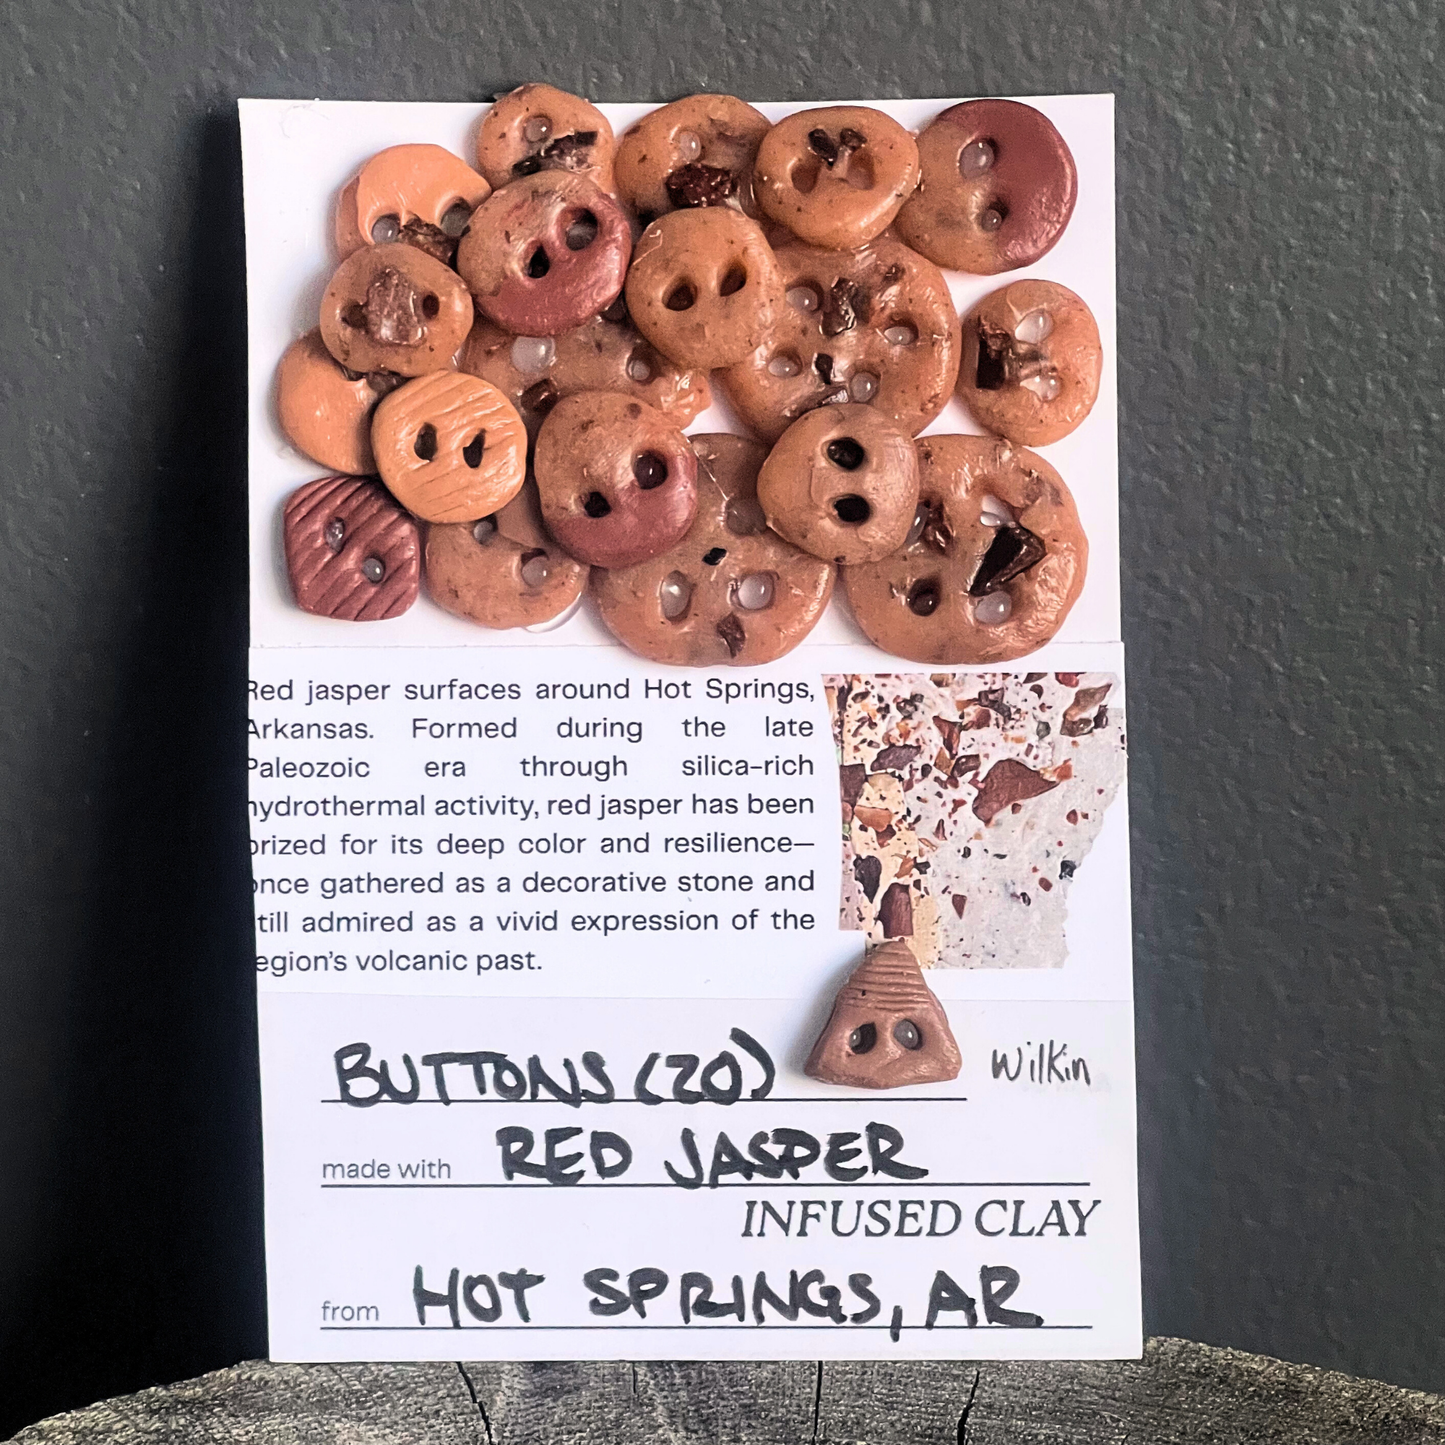 Red jasper surfaces around Hot Springs,
Arkansas. Formed during the late
Paleozoic era through silica-rich
hydrothermal activity, red jasper has been
prized for its deep color and resilience—
once gathered as a decorative stone and
still admired as a vivid expression of the
region's volcanic past.
BUTTONS (20)
Wilkin
made with RED JASPER
INFUSED CLAY
from HOT SPRINGS, AR